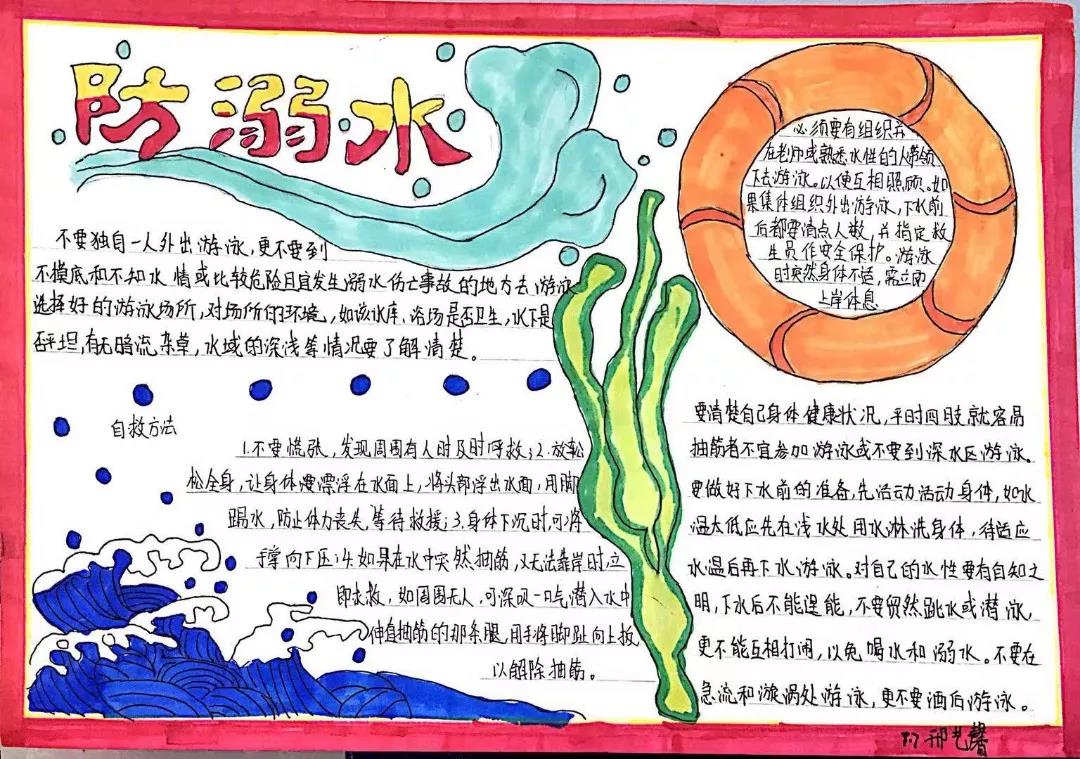 防溺水
不要独自一人外出游泳,更不要到
不摸底和不知水情或比较危险且宜发生溺水伤亡事故的地方去游泳
选择好的游泳场所,对场所的环境,如该水库、浴场是否卫生,水下是
否平坦,有无暗流、杂草,水域的深浅等情况要了解清楚。
自救方法
1.不要慌张,发现周围有人时及时呼救;2.放松
松全身,让身体漂浮在水面上,将头部浮出水面,用脚
踢水,防止体力丧失,等待救援;3.身体下沉时,可将
手掌向下压;4.如果在水中突然抽筋,又无法靠岸时,立
即求救,如周围无人,可深吸一口气潜入水中
伸直抽筋的那条腿,用手将脚趾向上扳
以解除抽筋。
必须要有组织并
在老师或熟悉水性的人带领
下去游泳。以便互相照顾。如
果集体组织外出游泳,下水前
后都要清点人数,并指定救
生员作安全保护。游泳
时突然身体不适,需立即
上岸休息
要清楚自己身体健康状况,平时四肢就容易
抽筋者不宜参加游泳或不要到深水区游泳。
要做好下水前的准备,先活动活动身体,如水
温太低应先在浅水处用水淋洗身体,待适应
水温后再下水游泳。对自己的水性要有自知之
明,下水后不能逞能,不要贸然跳水或潜泳,
更不能互相打闹,以免喝水和溺水。不要在
急流和漩涡处游泳,更不要酒后游泳。
邢艺馨